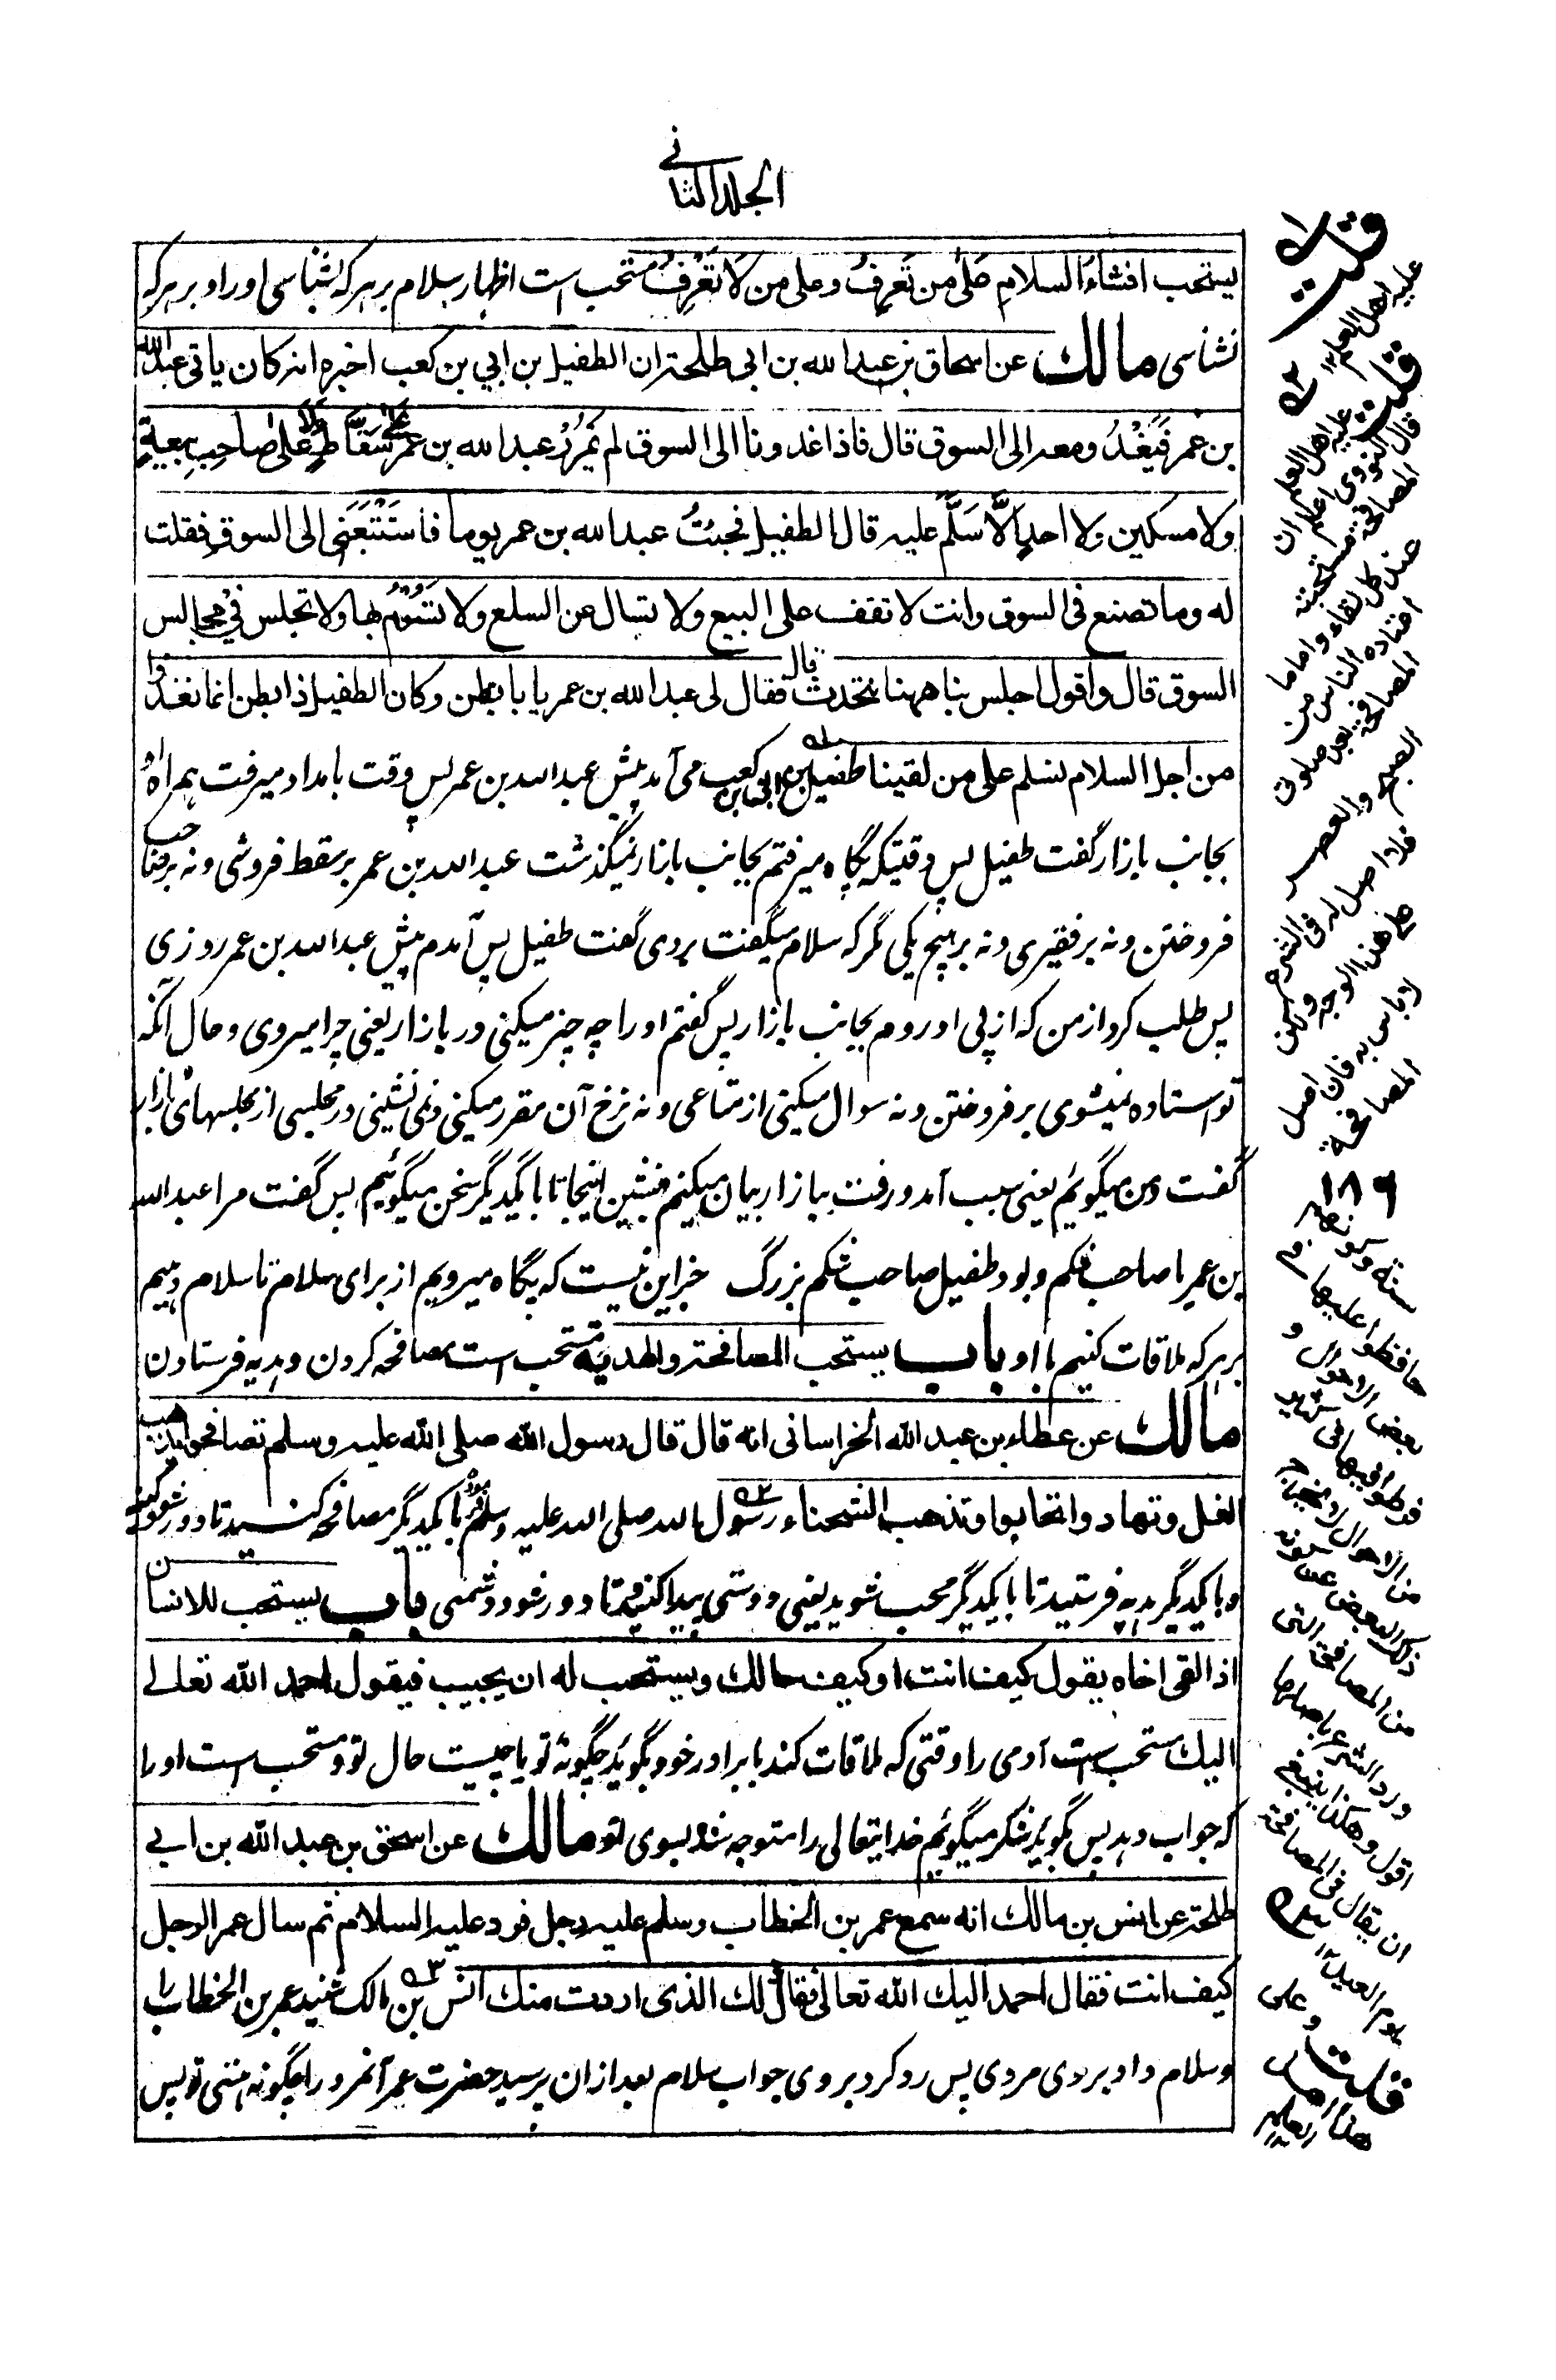 الجلد الثانی
يستحب افشاء السلام على من تَعرِفُ وعلى من لا تَعْرِفُ مستحب است اظهار سلام بر هر که بشناسی او را و بر هر که
نشناسی مالك عن اسحاق بن عبد الله بن ابی طلحة ان الطفيل بن ابي بن كعب اخبره انه كان ياتى عبد الله
بن عمر فَيَغْدُ ومعه الى السوق قال فاذا غدونا الى السوق لم يَمْرُرْ عبد الله بن عمر على سَقَّاطٍ ولا على صاحب بيعةٍ
ولا مسكين ولا احدٍ الاَّ سَلَّمَ عليه قال الطفيل فجئتُ عبد الله بن عمر يوما فاسْتَتْبَعَنِى الى السوق فقلت
له وما تصنع فى السوق وانت لا تقف على البيع ولا تسال عن السلع ولا تَسُومُ بها ولا تجلس في مجالس
السوق قال واقول اجلس بنا ههنا نتحدث قال فقال لى عبد الله بن عمر يا ابا بطن وكان الطفيل ذا بطن انما نغدوا
من اجل السلام نسلم على من لقينا طفیل بن ابی بن کعب می آمد پیش عبد الله بن عمر پس وقت بامداد میرفت همراه او
بجانب بازار گفت طفیل پس وقتیکه پگاه میرفتم بجانب بازار نمیگذشت عبد الله بن عمر بر سقط فروشی و نه بر صاحب
فروختن و نه بر فقیری و نه بر هیچ یکی مگر که سلام میگفت بر وی گفت طفیل پس آمدم پیش عبد الله بن عمر روزی
پس طلب کرد از من که از پی او روم بجانب بازار پس گفتم او را چه چیز میکنی در بازار یعنی چرا میروی و حال آنکه
تو استاده نمیشوی بر فروختن و نه سوال میکنی از متاعی و نه نرخ آن مقرر میکنی و نمی نشینی در مجلسی از مجلسهای بازار
گفت و من میگویم یعنی سبب آمد و رفت ببازار بیان میکنم بنشین اینجا تا با یکدیگر سخن میگوئیم پس گفت مرا عبد الله
بن عمر یا صاحب شکم و بود طفیل صاحب شکم بزرگ جز این نیست که پگاه میرویم از برای سلام تا سلام دهیم
بر هر که ملاقات کنیم با او باب يستحب المصافحة والهدية مستحب است مصافحه کردن و هدیه فرستادن
مالك عن عطاء بن عبد الله الخراسانى انه قال قال رسول الله صلى الله عليه وسلم تصافحوا يذهب
الغل وتهادوا تحابوا وتذهب الشحناء رسول الله صلی الله علیه وسلم فرمود با یکدیگر مصافحه کنید تا دور شود کینه
و با یکدیگر هدیه فرستید تا با یکدیگر محب شوید یعنی دوستی پیدا کنید و تا دور شود دشمنی باب يستحب للانسان
اذا لقى اخاه يقول كيف انت او كيف حالك ويستحب له ان يجيب فيقول احمد الله تعالے
اليك مستحب است آدمی را وقتی که ملاقات کند با برادر خود بگوید چگونهٔ تو یا چیست حال تو و مستحب است او را
که جواب دهد پس بگوید شکر میگویم خدایتعالی را متوجه شده بسوی تو مالك عن اسحق بن عبد الله بن ابے
طلحة عن انس بن مالك انه سمع عمر بن الخطاب وسلم عليه رجل فرد عليه السلام ثم سال عمر الرجل
كيف انت فقال احمد اليك الله تعالى فقال ذلك الذى اردت منك انس بن مالک شنید عمر بن الخطاب را
و سلام داد بر وی مردی پس رد کرد بر وی جواب سلام بعد از ان پرسید حضرت عمر آنمرد را چگونه هستی تو پس
قلت
عليه اهل العلم
قلت
عليه اهل العلم
قال النووى اعلم ان
المصافحة مستحبة
عند كل لقاء واما ما
اعتاده الناس من
المصافحة بعد صلوة
الصبح والعصر
فلا اصل له فى الشرع
على هذا الوجه ولكن
لا باس به فان اصل
المصافحة
١٨٩
سنة وكونهم
حافظوا عليها فى
بعض الاحوال و
فرطوا فيها فى كثير
من الاحوال لا يخرج
ذلك البعض عن كونه
من المصافحة التى
ورد الشرع باصلها
اقول وهكذا ينبغى
ان يقال فى المصافحة
يوم العيد
قلت وعلى
هذا اهل العلم